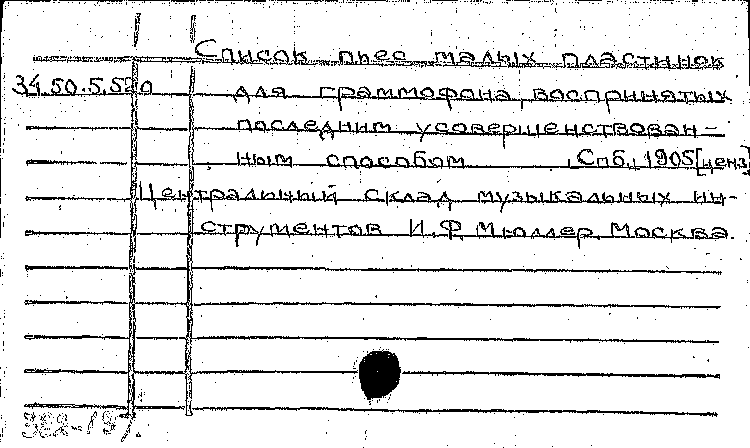 Список пьес малых пластинок
34.50.5.520 для граммофона, воспринятых
последним усовершенствован-
ным способом Спб., 1905[ценз
Центральный склад музыкальных ин-
струментов И. Ф. Мюллер. Москва.